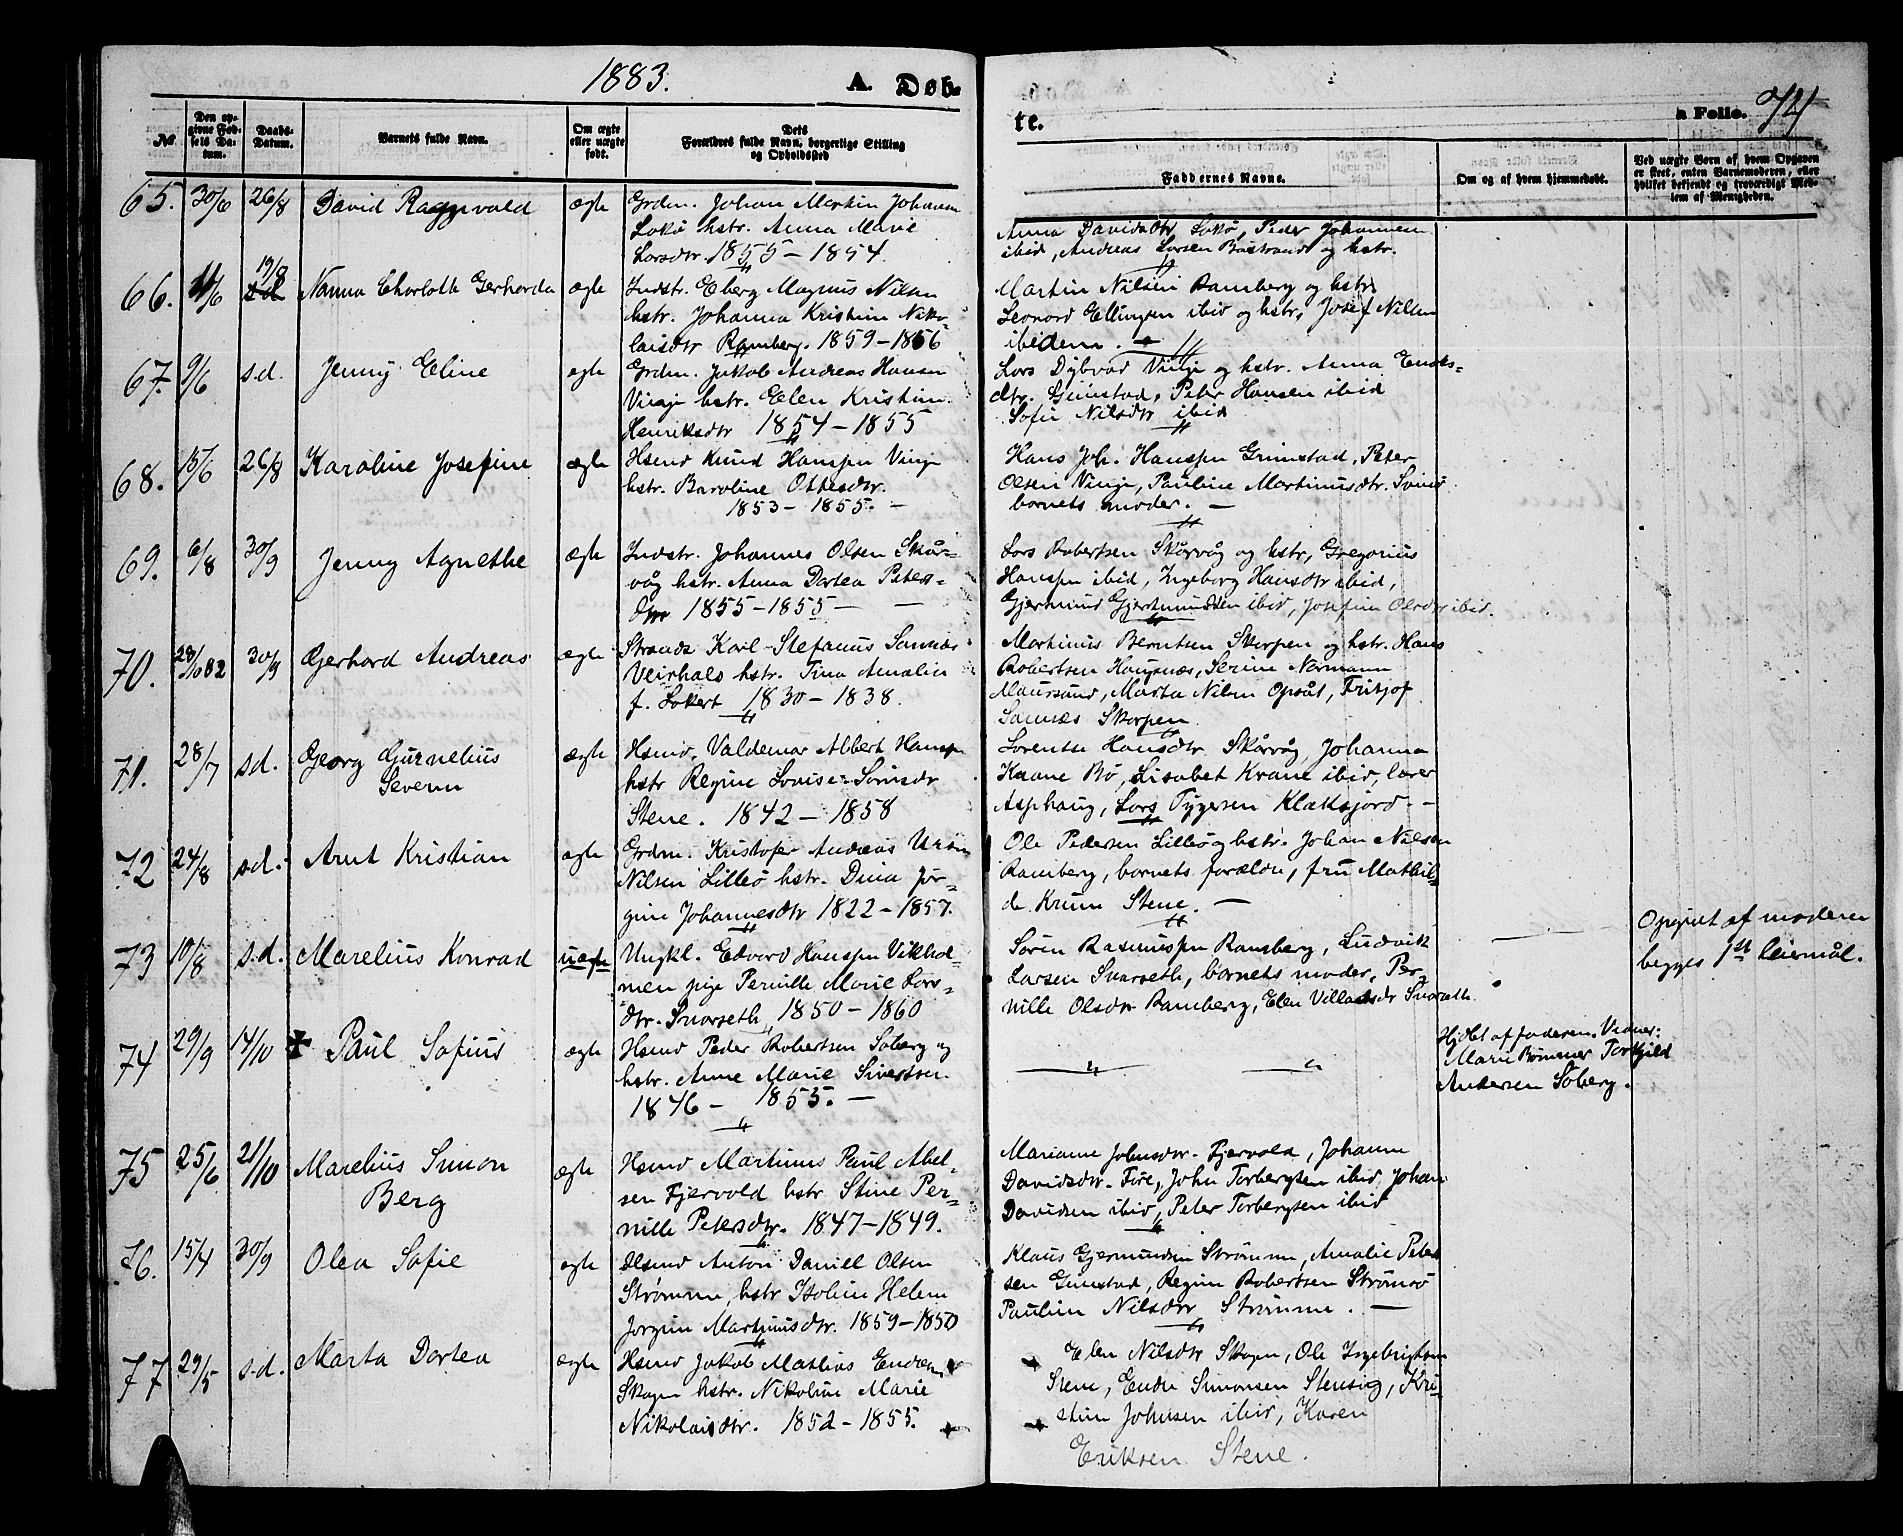 1883.
A. Døb-
te.
a Folio. 74
No
Den op-
givne Fød-
sels Da-
tum.
Daabs-
Datum.
Barnets fulde Navn.
Om ægte
eller uægte
født.
Dets
Forældres fulde Navn, borgerlige Stilling
og Opholdssted
Faddernes Navne.
Om og af hvem hjemmedøbt.
Ved uægte Børn af hvem Opgaven
er skeet, enten Barnemoderen, eller
hvilket bekjendt og troværdigt Med-
lem af Menigheden.
65. 30/6 26/8 David Ragnvald ægte Grdm. Johan Martin Johansen
Lokø hstr. Anna Marie
Larsdtr. 1855 – 1854.
Anna Davidsdtr Lokø, Peder Johannesen
ibid, Andreas Larsen Bøstrand og hstr.
66. 11/6 19/8 Nanna Charlotte Gerharda ægte Indstr. Eberg Magnus Nilsen
hstr. Johanna Kristine Niko-
laisdtr Ramberg. 1859 – 1856
Martin Nilsen Ramberg og hstr.
Leonard Ellingsen ibid og hstr, Josef Nilsen
ibidem. –
67. 9/6 s.d. Jenny Eline ægte Grdm. Jakob Andreas Hansen
Vinje hstr. Elen Kristine
Henriksdtr 1854 – 1855
Lars Dybvad Vinje og hstr. Anna Endes-
dtr. Grimstad, Peter Hansen ibid
Sofie Nilsdtr ibid
68. 15/6 26/8 Karoline Josefine ægte Hsmd Knud Hanssen Vinje
hstr. Baroline Ottesdtr.
1853 – 1855. –
Hans Joh. Hanssen Grimstad, Peter
Olsen Vinje, Pauline Martinusdtr.
barnets moder. –
69. 6/8 30/9 Jenny Agnethe ægte Indstr. Johannes Olsen Skår-
våg hstr. Anna Dortea Peters-
dtr 1855 – 1855 –
Lars Robertsen Skårvåg og hstr, Gregorius
Hanssen ibid, Ingeborg Hansdtr ibid,
Gjermund Gjertmundsen ibid, Josefine Olsdtr ibid.
70. 28/10 82 30/9 Gerhard Andreas ægte Strands. Karl Stefanus Sannæs
Veirhals hstr. Tina Amalia
f. Lokert 1830 – 1838.
Martinus Berntsen Skorpen og hstr. Hans
Robertsen Haugsnæs, Serine Normann
Maursund, Marta Nilsen Opsåt, Fritjof
Sannæs Skorpen
71. 28/7 s.d. Georg Gurnelius
Severin ægte Hsmd. Valdemar Albert Hanssen
hstr Regine Lovise Simsdr
Stene. 1842 – 1858
Lorentse Hansdtr Skårvåg, Johanna
Krane Bø, Lisabet Krane ibid, lærer
Asphaug, Lars Tygesen Klaksjord. –
72 24/8 s.d. Arnt Kristian ægte Grdm. Kristofer Andreas Ursin
Nilsen Lilleø hstr. Dina Jør-
gine Johannesdtr 1822 – 1857.
Ole Pedersen Lilleø og hstr. Johan Nilsen
Ramberg, barnets forældre, fru Mathil-
de Krum Stene. –
73 10/8 s.d. Marelius Konrad uægte Ungkl. Edvard Hanssen Vikhol-
men pige Pernille Marie Lars-
dtr. Svarseth, 1850 – 1860
Søren Rasmussen Ramberg, Ludvik
Larsen Svarseth, barnets moder, Per-
nille Olsdtr Ramberg, Elen Villadsdr Svarseth
Opgivet af moderen
begges 1st leiermål.
74 29/9 14/10 ✠ Paul Sofius ægte Hsmd Peder Robertsen Soberg og
hstr. Anne Marie Sivertsen
1846 – 1855. –
Hjdbt af faderen. Vidner:
Marie Rømmer Torkild
Andersen Soberg.
75 25/6 21/10 Marelius Simon
Berg ægte Hsmd Martinus Paul Abel-
sen Fjervold hstr Stine Per-
nille Petersdtr. 1847 – 1849.
Marianne Johnsdtr. Fjervold, Johanna
Davidsdtr. Fire, John Torbergsen ibid, Johan
Davidsen ibid, Peter Torbergsen ibid
76. 15/4 30/9 Olea Sofie ægte Hsmd Anton Daniel Olsen
Strømme, hstr Isoline Helene
Jørgine Martinusdtr. 1859 – 1850
Klaus Gjermundsen Strømme, Amalie Peter
sen Grimstad, Regine Robertsen Strømsø
Pauline Nilsdtr Strømme. –
77 29/5 s.d. Marta Dortea ægte Hsmd Jakob Mathias Endresen
Skogen hstr. Nikoline Marie
Nikolaisdtr. 1852 – 1855.
Elen Nilsdtr Skogen, Ole Ingebrigtsen
Stene, Endre Simonsen Stensvig, Kri-
stine Johnsen ibid, Karen
Eriksen Stene.